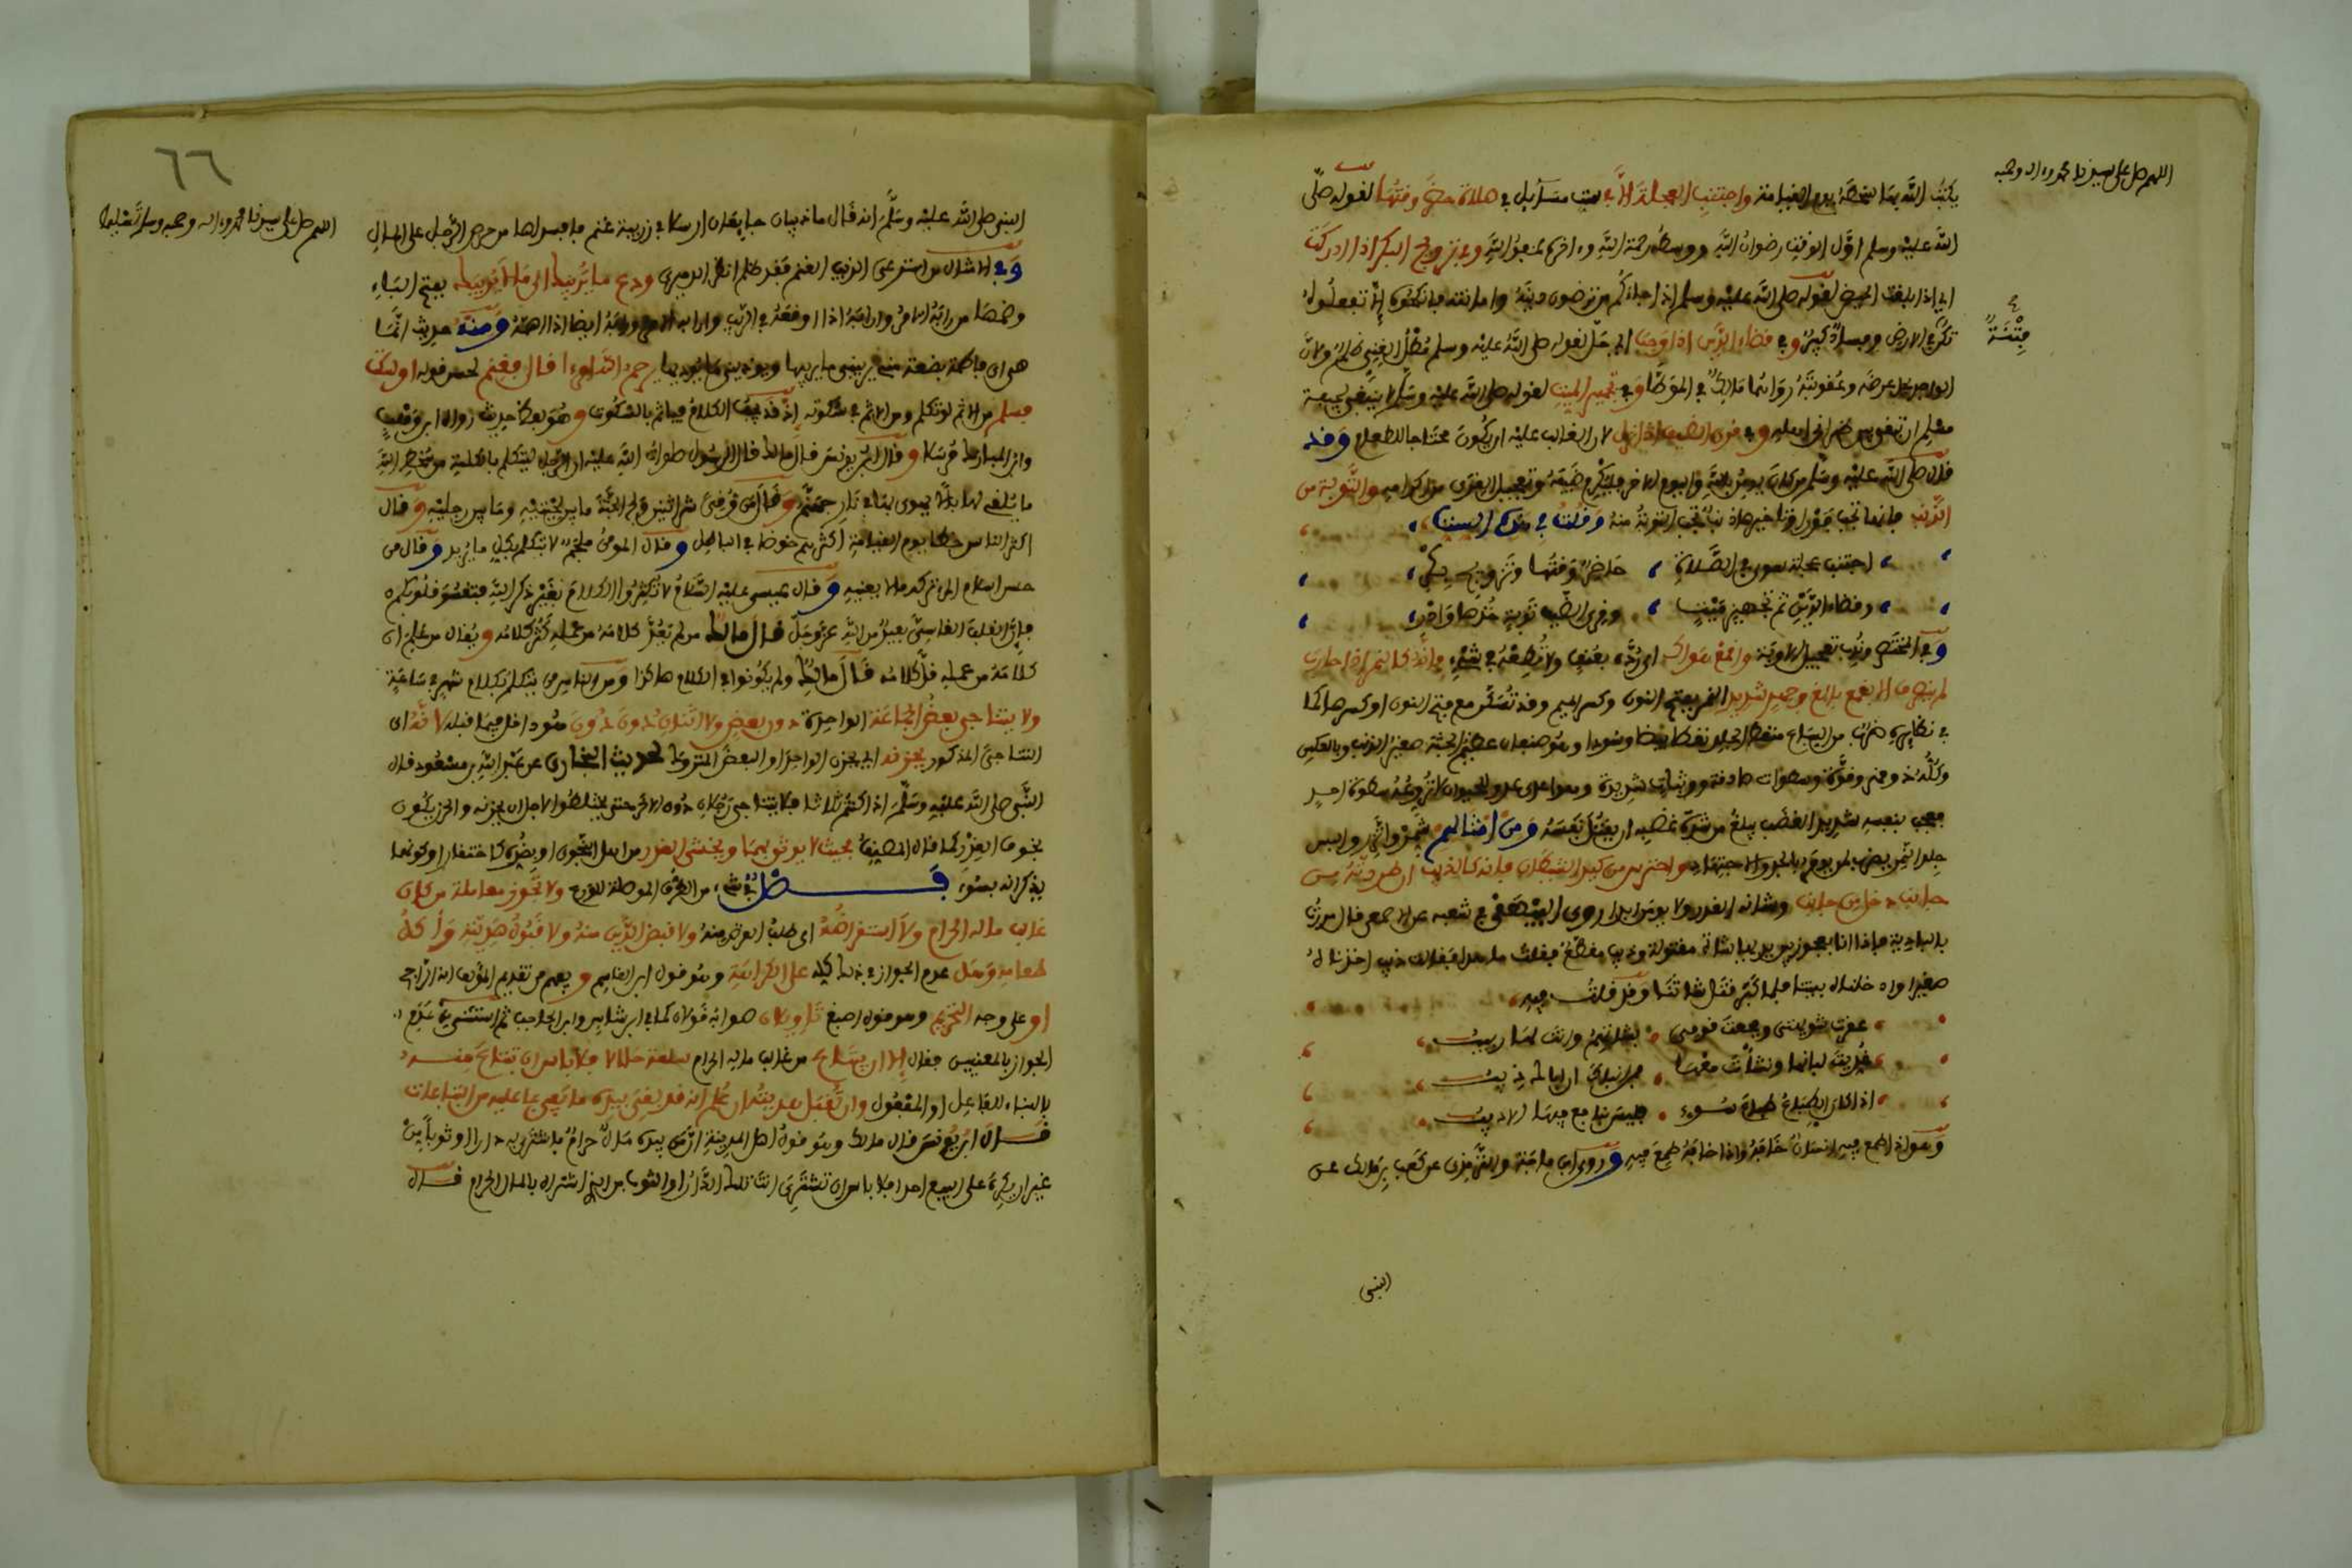 اللهم صل على سيدنا محمد وءاله وصحبه
يكتب الله بها سخطه يوم القيامة واجتنب العجلة إلا في ست مسائل في صلاة حضر وقتها لقوله صلى
الله عليه وسلم أول الوقت رضوان الله ووسطه رحمة الله وءاخره عفو الله وفي تزويج البكر إذا أدركت
أي إذا بلغت الحيض لقوله صلى الله عليه وسلم إذا جاءكم من ترضون دينه وأمانته فأنكحوه إلا تفعلوه
تكن في الأرض وفساد كبير وفي قضاء الدين إذا وجب أي حل لقوله صلى الله عليه وسلم مطل الغني ظلم ولأن
فتنة
الواجد يحل عرضه وعقوبته رواهما مالك في الموطأ وفي تجهيز الميت لقوله صلى الله عليه وسلم لا ينبغي لجيفة
مسلم أن تبقى بين ظهراني أهله وفي قرى الضيف إذا نزل لأن الغالب عليه أن يكون محتاجا للطعام وقد
قال صلى الله عليه وسلم من كان يؤمن بالله واليوم الآخر فليكرم ضيفه وتعجيل القرى من إكرامه والتوبة من
الذنب فإنها تجب فورا وتأخيرها ذنب تجب التوبة منه وقلت في هذه الست
اجتنب عجلة سوى في الصلاة حاضر وقتها وتزويج بكر
وقضاء الدين ثم تجهيز ميت وقرى الضيف توبة خذها وادر
وفي المختصر وندب تعجيل الأوبة واقمع هواك أي رده بعنف ولا تطعه في شيء فإنه كالنمر إذا حارب
لم ينصرف إلا بقمع بالغ وجهد شديد النمر بفتح النون وكسر الميم وقد تسكن مع فتح النون أو كسرها كما
في نظائره ضرب من السباع منقط الجلد نقطا بيضا وسودا وهو صنفان عظيم الجثة صغير الذنب وبالعكس
وكله ذو قهر وقوة وسطوات صادقة ووثبات شديدة وهو أعدى عدو للحيوان لا تروعه سطوة أحد
معجب بنفسه شديد الغضب يبلغ من شدة غضبه أن يقتل نفسه ومن أمثالهم شمر واتزر والبس
جلد النمر يضرب لمن يومر بالجد والاجتهاد واحترس من كيد الشيطان فإنه كالذئب إن طردته من
جانب دخل من جانب وشأنه الغدر ولا يومن أبدا روى البيهقي في شعبه عن الأصمعي قال مررت
بالبادية فإذا أنا بعجوز بين يديها شاة مقتولة وذيب مقطع فقلت ما هذا فقالت ذيب أخذناه
صغيرا وأدخلناه بيتنا فلما كبر قتل شاتنا وقد قلت فيه
عقرت شويهتي وفجعت قومي بشاتهم وأنت لها ربيب
غذيت لبانها ونشأت معها فمن أنباك أن أباك ذيب
إذا كان الطباع طباع سوء فليس بنافع فيها الأديب
وهو إذا طمع فيه إنسان خافه وإذا خافه طمع فيه وروى ابن ماجة والترمذي عن كعب بن مالك عن
النبي
٦٦
اللهم صل على سيدنا محمد وءاله وصحبه وسلم تسليما
النبي صلى الله عليه وسلم أنه قال ما ذيبان جايعان أرسلا في زريبة غنم بأفسد لها من حرص الرجل على المال
وفي الأمثال من استرعى الذيب الغنم فقد ظلم انظر الدميري ودع ما يريبك إلى ما لا يريبك بفتح الياء
وضمها من رابه الأمر وأرابه إذا أوقعه في الريب ورابه أيضا إذا أهمه ومنه حديث إنما
هي أي فاطمة بضعة مني يريبني ما يريبها ويوذيني ما يوذيها رحم الله امرءا قال فغنم لحسن قوله أو سكت
فسلم من إثم لو تكلم ومن إثم في سكوته إذ قد يجب الكلام فياثم بالسكوت وهو بعض حديث رواه ابن وهب
وابن المبارك مرسلا وقال ابن يونس قال مالك قال الرسول صلوات الله عليه إن الرجل ليتكلم بالكلمة من سخط الله
ما يلقي لها بالا يهوي بها في نار جهنم وقال من وقي شر اثنين ولج الجنة ما بين لحييه وما بين رجليه وقال
أكثر الناس خطايا يوم القيامة أكثرهم خوضا في الباطل وقال المومن ملجم لا يتكلم بكل ما يريد وقال من
حسن إسلام المرء تركه ما لا يعنيه وقال عيسى عليه السلام لا تكثروا الكلام بغير ذكر الله فتقسو قلوبكم
فإن القلب القاسي بعيد من الله عز وجل قال مالك من لم يعد كلامه من عمله كثر كلامه ويقال من علم أن
كلامه من عمله قل كلامه قال مالك ولم يكونوا في الكلام هكذا ومن الناس من يتكلم بكلام شهر في ساعة
ولا يتناجى بعض الجماعة الواحدة دون بعض ولا اثنان دون دون هو داخل فيما قبله لأنه أي
التناجي المذكور يحزنه أي يحزن الواحد أو البعض المتروك لحديث البخاري عن عبد الله بن مسعود قال
النبي صلى الله عليه وسلم إذا كنتم ثلاثا فلا يتناجى رجلان دون الآخر حتى يختلطوا لأجل أن يحزنه والحزن يكون
بخوف الغدر كما قال المصنف بحيث لا يوثق بهما ويخشى الغدر من أهل الفجور أو بغيره كاحتقار أو كونهما
يذكرانه بسوء فصل في شيء من الطرق الموصلة للورع ولا تجوز معاملة من كان
غالب ماله الحرام ولا استقراضه أي طلب القرض منه ولا قبض الدين منه ولا قبول هديته ولا أكل
طعامه وهل عدم الجواز في ذلك كله على الكراهة وهو قول ابن القاسم ويفهم من تقديم المؤلف أنه الراجح
أو على وجه التحريم وهو قول أصبغ تاويلان صوابه قولان كما في ابن شاس وابن الحاجب ثم استثنى من عدم
الجواز بالمعنيين فقال إلا أن يبتاع من غالب ماله الحرام سلعة حلالا فلا باس أن تبتاع منه
بالبناء للفاعل أو المفعول وأن تقبل هديته إن علم أنه قد بقي بيده ما يفي بما عليه من التباعات
قال ابن يونس قال مالك وهو قول أهل المدينة إن من بيده مال حرام فاشترى به دارا أو ثوبا من
غير أن يكره على البيع أحدا فلا باس أن تشتري أنت تلك الدار أو الثوب من الذي اشتراه بالمال الحرام قال